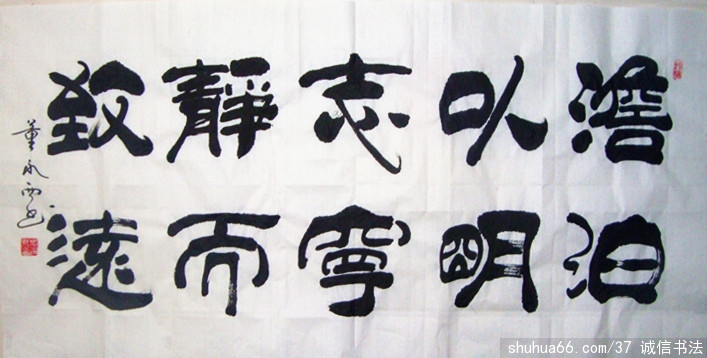 澹泊
以明
志寧
靜而
致遠
董永西书
shuhua66.com/37 诚信书法